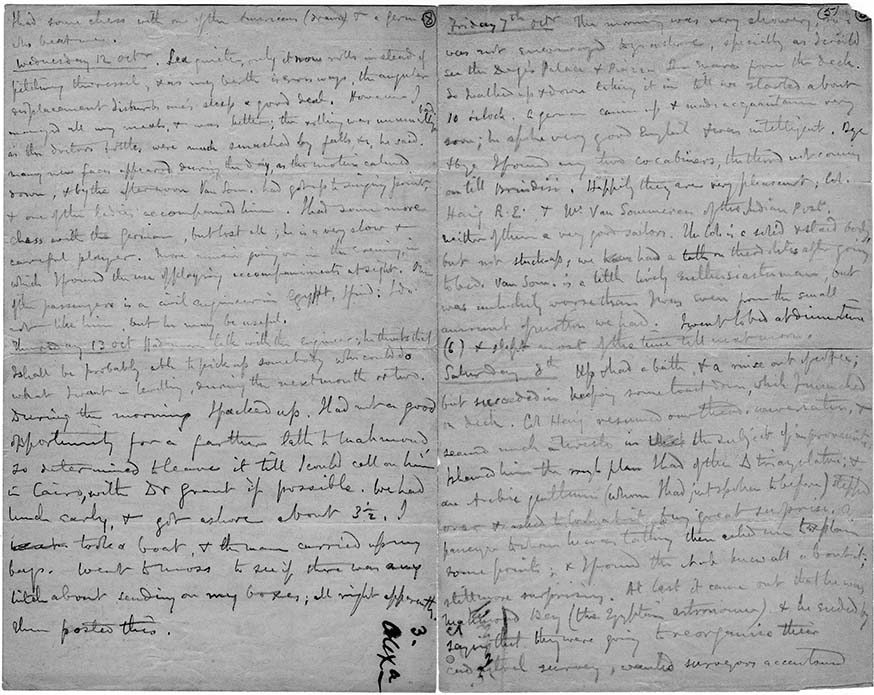 had some chess with one of the Americans (drawn) & a german
who beat me.
Wednesday 12 Octr. Sea quieter, only it now rolls instead of
pitching the vessel, & as my berth is crossways, the angular
displacement disturbs one's sleep a good deal. However I
managed all my meals, & was better; the rolling was
as the doctors bottles were much smashed by falls &c, he said.
many new faces appeared during the day, as the motion calmed
down, & by the afternoon Van Som. had got up to singing point,
& one of the ladies accompanied him. I had some more
chess with the german, but lost all; he is a very slow &
careful player. More music going on in the evening, in
which I found the use of playing accompaniments at sight. One
of the passengers is a civil engineer in Egypt, I find: I do
not like him, but he may be useful.
Thursday 13 Oct Had a talk with the Engineer; he thinks that
I shall be probably able to pick up somebody who could do
what I want in levelling, during the next month or two.
During the morning I packed up. Had not a good
opportunity for a farther talk to Mahmoud
so determined to leave it till I could call on him
in Cairo, with Dr Grant if possible. We had
lunch early, & got ashore about 3½. I
took a boat, & the man carried up my
bags. Went to Moss to see if there was any
hitch about sending on my boxes; all right apparently.
Then posted this.
3.
Alexa
8
5
Friday 7th Octr The morning was very showery, so I
was not encouraged to go ashore, specially as I could
see the Doge's Palace & Piazza from the deck.
So I walked up & down taking it in till we started about
10 o'clock. A german came up & made acquaintance very
soon; he spoke very good English & was intelligent. Bye
& bye I found my two cocabiners, the third not coming
on till Brindisi. Happily they are very pleasant; Col.
Haig R.E. & Mr Van Someren of the Indian Post.
neither of them very good sailors. The Col. is a solid & staid body,
but not stuck up; we had a talk on theodolites after going
to bed. Van Som. is a little lively enthusiastic man, but
was unluckily worse than I was even from the small
amount of motion we had. I went to bed at dinner time
(6) & slept most of the time till next morn.
Saturday 8th Up & had a bath, & a rinse out of coffee;
but succeeded in keeping some toast down, which I munched
on deck. Col Haig resumed our theod. conversation, &
seemed much interested in the subject of improvements;
I shewed him the rough plan I had of the Δ &
an Arabic gentleman (whom I had just spoken to before) stepped
over & asked to look at it, to my great surprise. A
passenger to whom he was talking then asked me to explain
some points; & I found the Arab knew all about it;
still more surprising. At last it came out that he was
Mahmoud Bey (the Egyptian astronomer) & he ended by
saying that they were going to reorganise their
cadastral survey, wanted surveyors accustomed